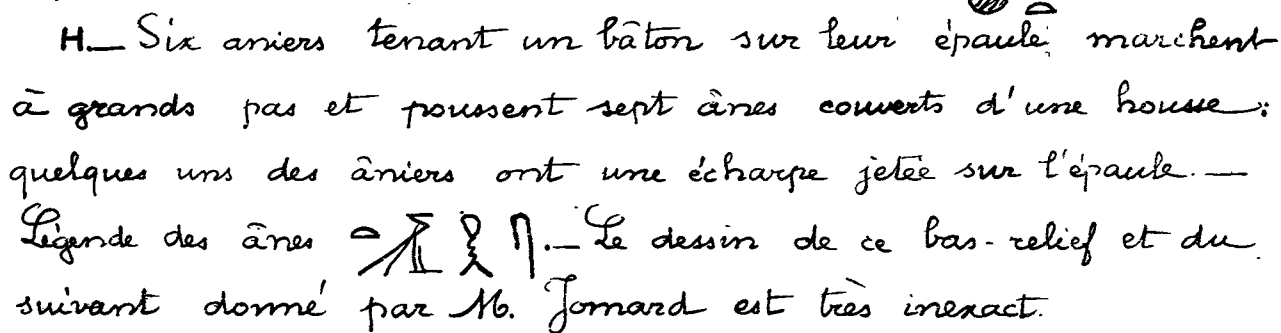 H.— Six aniers tenant un bâton sur leur épaule marchent
à grands pas et poussent sept ânes couverts d'une housse;
quelques uns des âniers ont une écharpe jetée sur l'épaule.—
Légende des ânes .— Le dessin de ce bas-relief et du
suivant donné par M. Jomard est très inexact.